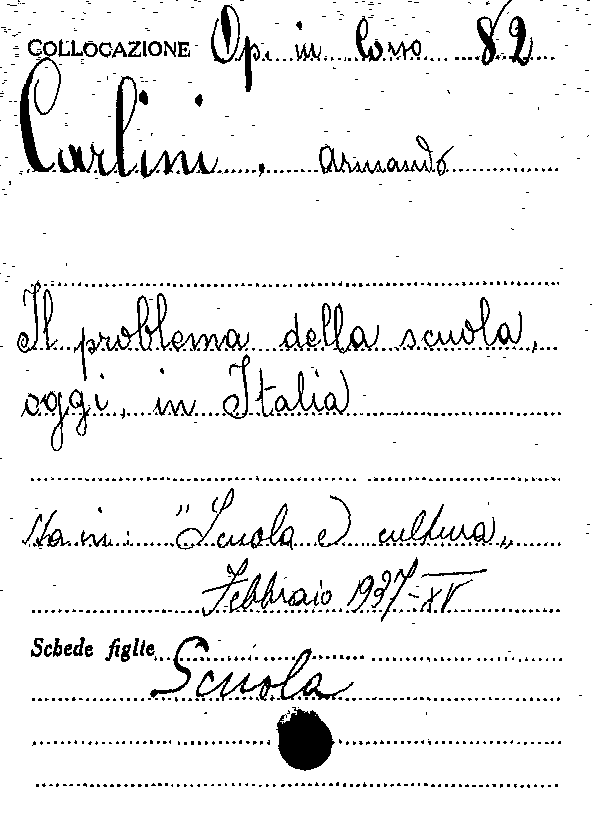 COLLOCAZIONE Op. in Corso 82
Carlini, Armando
Il problema della scuola,
oggi, in Italia
Sta in: "Scuola e cultura„
Febbraio 1937-XV
Schede figlie
Scuola